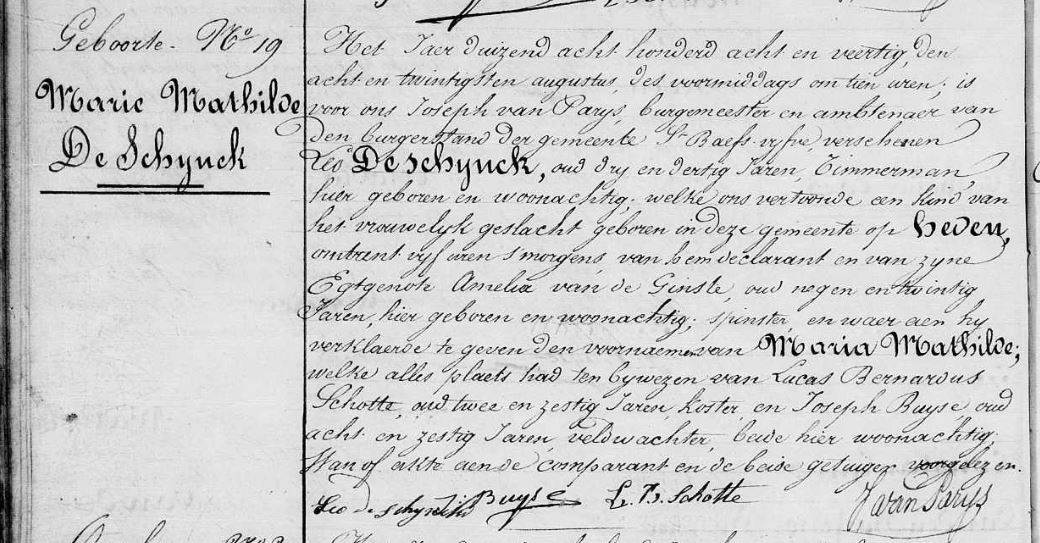 Geboorte. No 19
Marie Mathilde
De Schynck
Het Jaer duizend acht honderd acht en veertig, den
acht en twintigsten augustus, des voormiddags om tien uren; is
voor ons Joseph van Parys, burgemeester en ambtenaer van
den burgerstand der gemeente St Baefs-vyfve verschenen
Leo De Schynck, oud dry en dertig Jaren, Timmerman,
hier geboren en woonachtig; welke ons vertoonde een kind van
het vrouwelyk geslacht geboren in deze gemeente op heden,
omtrent vyf uren s'morgens, van hem declarant en van zyne
Egtgenote Amelia van de Ginste, oud negen en twintig
Jaren, hier geboren en woonachtig; spinster, en waer aen hy
verklaerde te geven den voornaemen van Maria Mathilde;
welke alles plaets had ten bywezen van Lucas Bernardus
Schotte, oud twee en zestig Jaren, koster, en Joseph Buyse oud
acht en zestig Jaren, veldwachter, beide hier woonachtig;
Wan of akte aen de comparant en de beide getuigen voorgelezen.
Leo de Schynck Buyse L. B. Schotte J van Parys